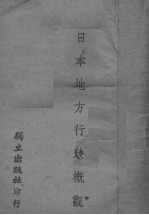 日本地方行政概觀
獨立出版社印行